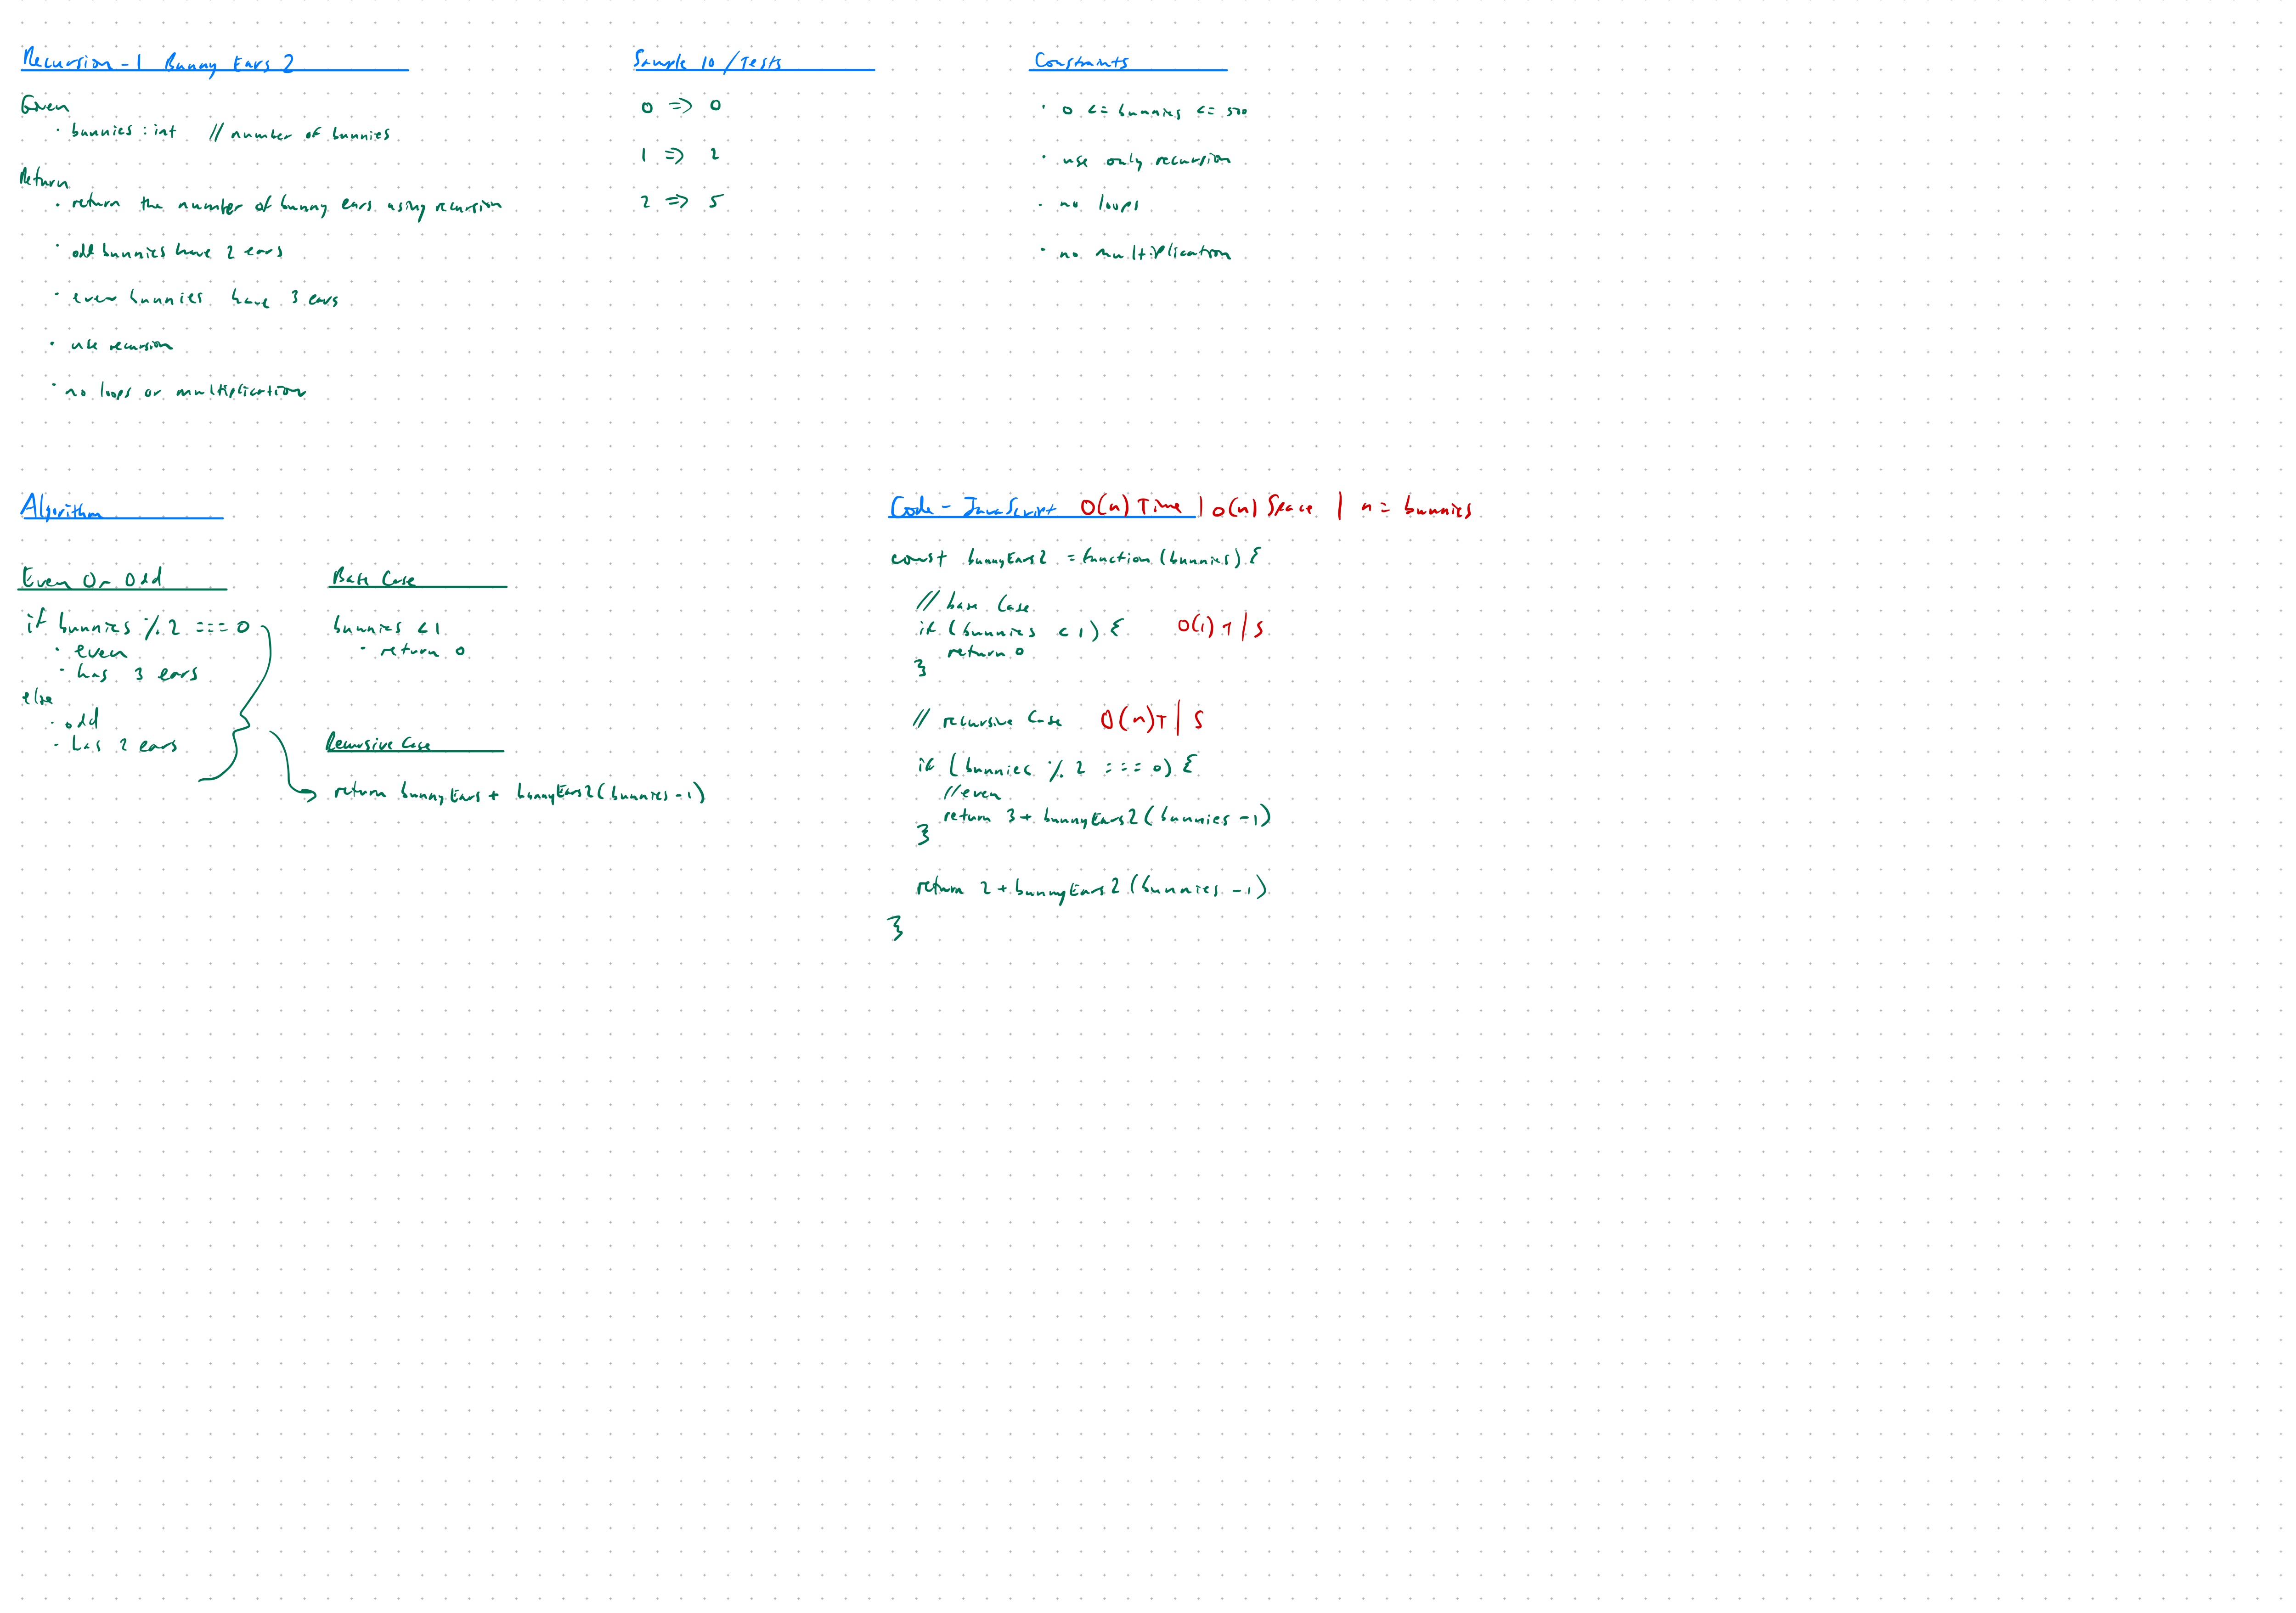 Recursion-1 Bunny Ears 2
Given
· bunnies : int // number of bunnies
Return
· return the number of bunny ears using recursion
· odd bunnies have 2 ears
· even bunnies have 3 ears
· use recursion
· no loops or multiplication
Sample IO / Tests
0 => 0
1 => 2
2 => 5
Constraints
· 0 <= bunnies <= 500
· use only recursion
· no loops
· no multiplication
Algorithm
Even Or Odd
if bunnies % 2 === 0
· even
· has 3 ears
else
· odd
· has 2 ears
Base Case
bunnies < 1
· return 0
Recursive Case
return bunnyEars + bunnyEars2(bunnies - 1)
Code - JavaScript O(n) Time | O(n) Space | n = bunnies
const bunnyEars2 = function (bunnies) {
// base case
if (bunnies < 1) { O(1) T | S
return 0
}
// recursive case O(n) T | S
if (bunnies % 2 === 0) {
// even
return 3 + bunnyEars2 (bunnies - 1)
}
return 2 + bunnyEars2 (bunnies - 1)
}